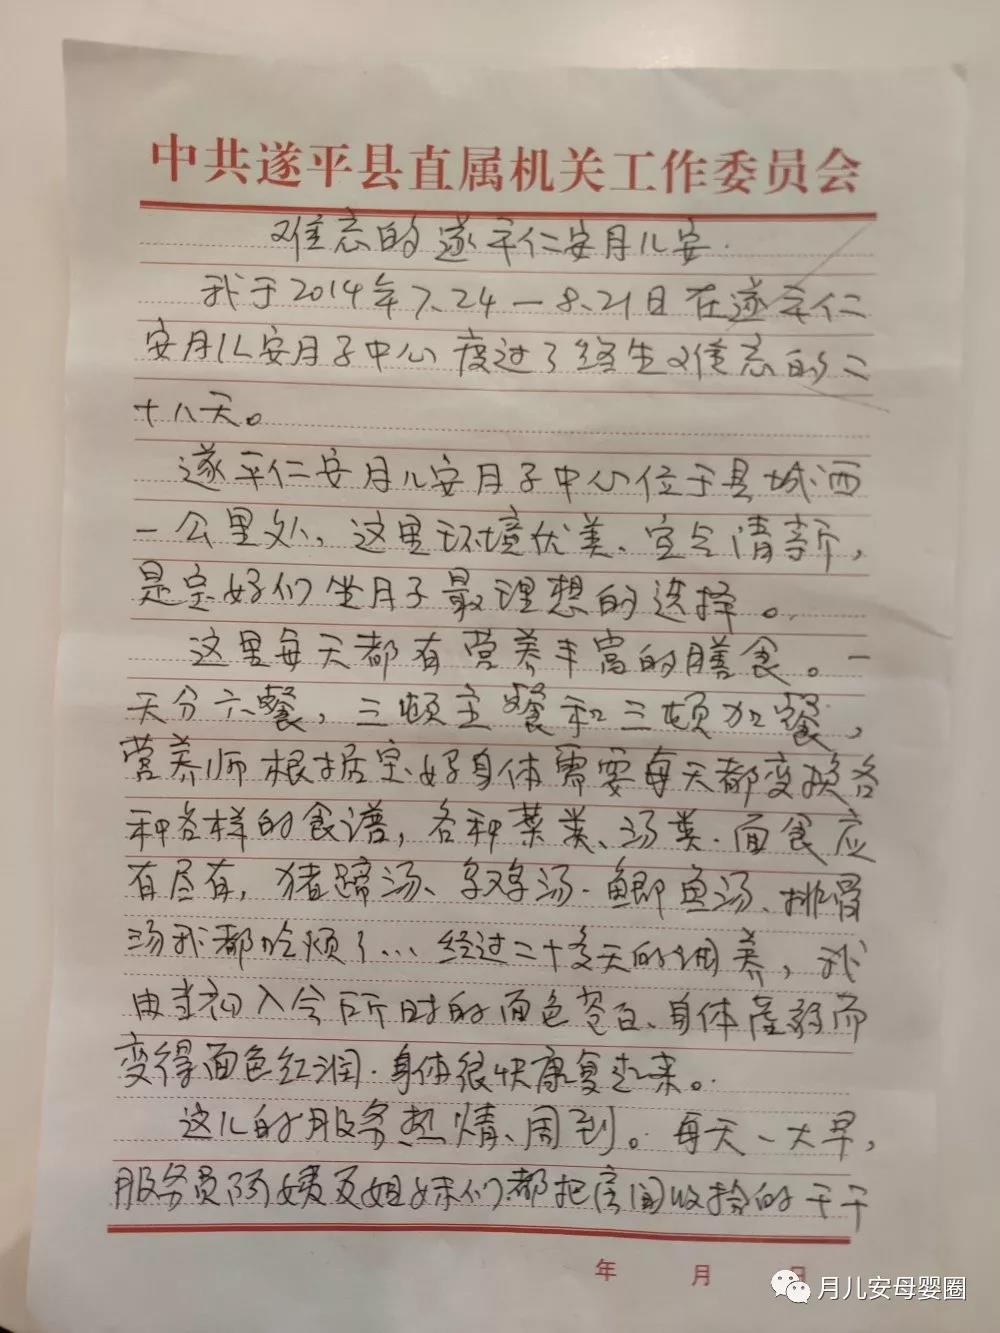 中共遂平县直属机关工作委员会
难忘的遂平仁安月儿安.
我于2014年7.24—8.21日在遂平仁
安月儿安月子中心度过了终生难忘的二
十八天。
遂平仁安月儿安月子中心位于县城西
一公里处、这里环境优美、空气清新，
是宝妈们坐月子最理想的选择。
这里每天都有营养丰富的膳食。一
天分六餐，三顿主餐和三顿加餐，
营养师根据宝妈身体需要每天都变换各
种各样的食谱，各种菜类、汤类·面食应
有尽有，猪蹄汤、乌鸡汤·鲫鱼汤、排骨
汤我都吃烦了...经过二十多天的调养，我
由当初入会所时的面色苍白、身体虚弱而
变得面色红润·身体很快康复起来。
这儿的服务热情、周到。每天一大早，
服务员阿姨及姐妹们都把房间收拾的干干
年 月 日
月儿安母婴圈